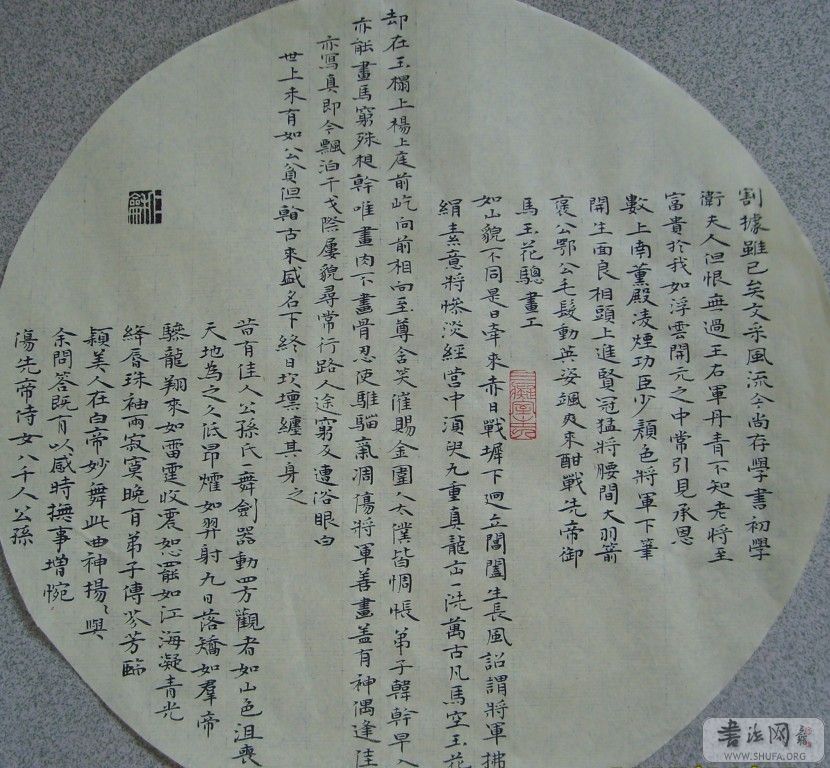 割據雖已矣文采風流今尚存學書初學
衛夫人但恨無過王右軍丹青不知老將至
富貴於我如浮雲開元之中常引見承恩
數上南薰殿凌煙功臣少顏色將軍下筆
開生面良相頭上進賢冠猛將腰間大羽箭
褒公鄂公毛髮動英姿颯爽來酣戰先帝御
馬玉花驄畫工
如山貌不同是日牽來赤日戰墀下迥立閶闔生長風詔謂將軍拂
絹素意將慘淡經營中須臾九重真龍出一洗萬古凡馬空玉花
却在玉榻上榻上庭前屹向前相向至尊含笑催賜金圉人太僕皆惆悵弟子韓幹早入
亦能畫馬窮殊相幹唯畫肉不畫骨忍使驊騮氣凋傷將軍善畫蓋有神偶逢佳
亦寫真即今飄泊干戈際屢貌尋常行路人途窮反遭俗眼白
世上未有如公貧但看古來盛名下終日坎壈纏其身之
昔有佳人公孫氏一舞劍器動四方觀者如山色沮喪
天地為之久低昂㸌如羿射九日落矯如羣帝
驂龍翔來如雷霆收震怒罷如江海凝青光
絳脣珠袖兩寂寞晚有弟子傳芬芳臨
潁美人在白帝妙舞此曲神揚揚與
余問答既有以感時撫事增惋
傷先帝侍女八千人公孫
書法网
WWW.SHUFA.ORG